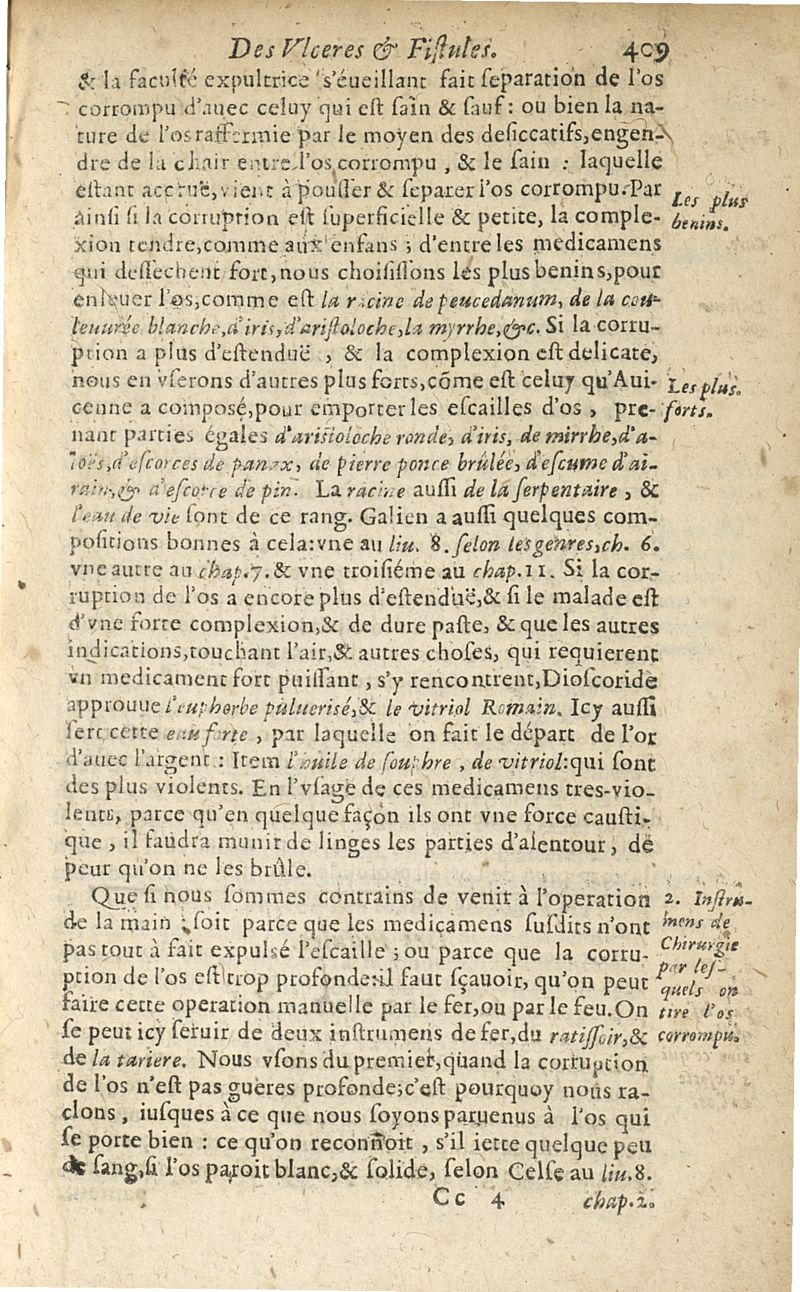 Des Vlceres & Fiſtules. 409
& la faculté expultrice s'éueillant fait ſeparation de l'os
corrompu d'auec celuy qui eſt ſain & ſauf : ou bien la na-
ture de l'os raffermie par le moyen des deſiccatifs,engen-
dre de la chair entre l'os corrompu , & le ſain : laquelle
eſtant accruë,vient à pouſſer & ſeparer l'os corrompu. Par
ainſi ſi la corruption eſt ſuperficielle & petite, la comple-
xion tendre,comme aux enfans ; d'entre les medicamens
qui deſſechent fort,nous choiſiſſons les plus benins,pour
enleuer l'os,comme eſt la racine de peucedanum, de la cou-
leuurée blanche,d'iris,d'ariſtoloche,la myrrhe,&c. Si la corru-
ption a plus d'eſtenduë , & la complexion eſt delicate,
nous en vſerons d'autres plus forts,cõme eſt celuy qu'Aui-
cenne a compoſé,pour emporter les eſcailles d'os , pre-
nant parties égales d'ariſtoloche ronde, d'iris, de mirrhe,d'a-
loës,d'eſcorces de panax, de pierre ponce brûlée, d'eſcume d'ai-
rain,& d'eſcorce de pin. La racine auſſi de la ſerpentaire , &
l'eau de vie ſont de ce rang. Galien a auſſi quelques com-
poſitions bonnes à cela:vne au liu. 8. ſelon les genres,ch. 6.
vne autre au chap.7. & vne troiſiéme au chap.11. Si la cor-
ruption de l'os a encore plus d'eſtenduë,& ſi le malade eſt
d'vne forte complexion,& de dure paſte, & que les autres
indications,touchant l'air,& autres choſes, qui requierent
vn medicament fort puiſſant , s'y rencontrent,Dioſcoride
approuue l'euphorbe puluerisé,& le vitriol Romain. Icy auſſi
ſert cette eau forte , par laquelle on fait le départ de l'or
d'auec l'argent : Item l'huile de ſouphre , de vitriol:qui ſont
des plus violents. En l'vſage de ces medicamens tres-vio-
lents, parce qu'en quelque façon ils ont vne force cauſti-
que , il faudra munir de linges les parties d'alentour, de
peur qu'on ne les brûle.
Que ſi nous ſommes contrains de venir à l'operation
de la main ; ſoit parce que les medicamens ſuſdits n'ont
pas tout à fait expulsé l'eſcaille ; ou parce que la corru-
ption de l'os eſt trop profonde:il faut ſçauoir, qu'on peut
faire cette operation manuelle par le fer,ou par le feu. On
ſe peut icy ſeruir de deux inſtrumens de fer,du ratiſſoir,&
de la tariere. Nous vſons du premier,quand la corruption
de l'os n'eſt pas guères profonde;c'eſt pourquoy nous ra-
clons , iuſques à ce que nous ſoyons paruenus à l'os qui
ſe porte bien : ce qu'on reconnoit , s'il iette quelque peu
de ſang,ſi l'os paroit blanc,& ſolide, ſelon Celſe au liu.8.
Cc 4 chap.2.
Les plus
benins.
Les plus
forts.
2. Inſtru-
mens de
Chirurgie
par leſ-
quels on
tire l'os
corrompu.